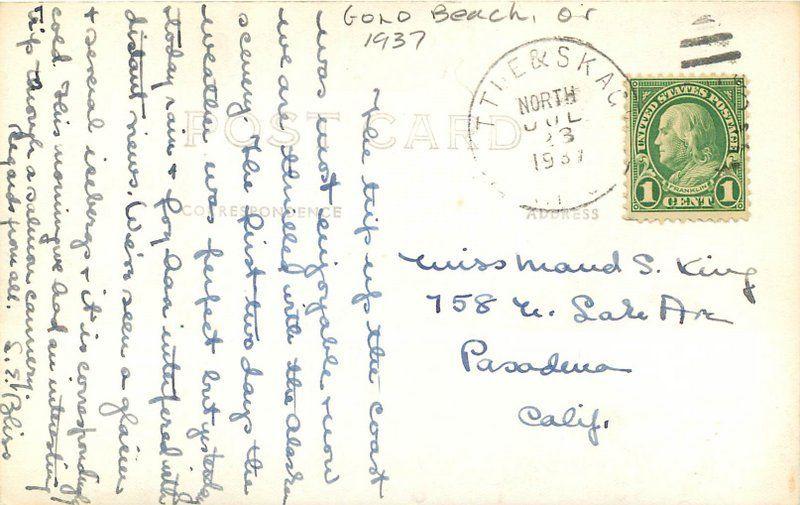 GOLD Beach, Or
1937
POST CARD
CORRESPONDENCE
ADDRESS
TTLE & SKAG
NORTH
JUL
23
1937
UNITED STATES POSTAGE
FRANKLIN
1 CENT 1
Miss Maud S. King
758 N. Lake Ave
Pasadena
Calif.
The trip up the coast
was most enjoyable & now
we are thrilled with the Alaska
scenery. The first two days the
weather was perfect but yesterday
& today rain & fog have interfered with
distant views. We've seen a glacier
& several icebergs & it is correspondingly
cold. This morning we had an interesting
trip through a salmon cannery.
Regards from all. L. E. Bliss